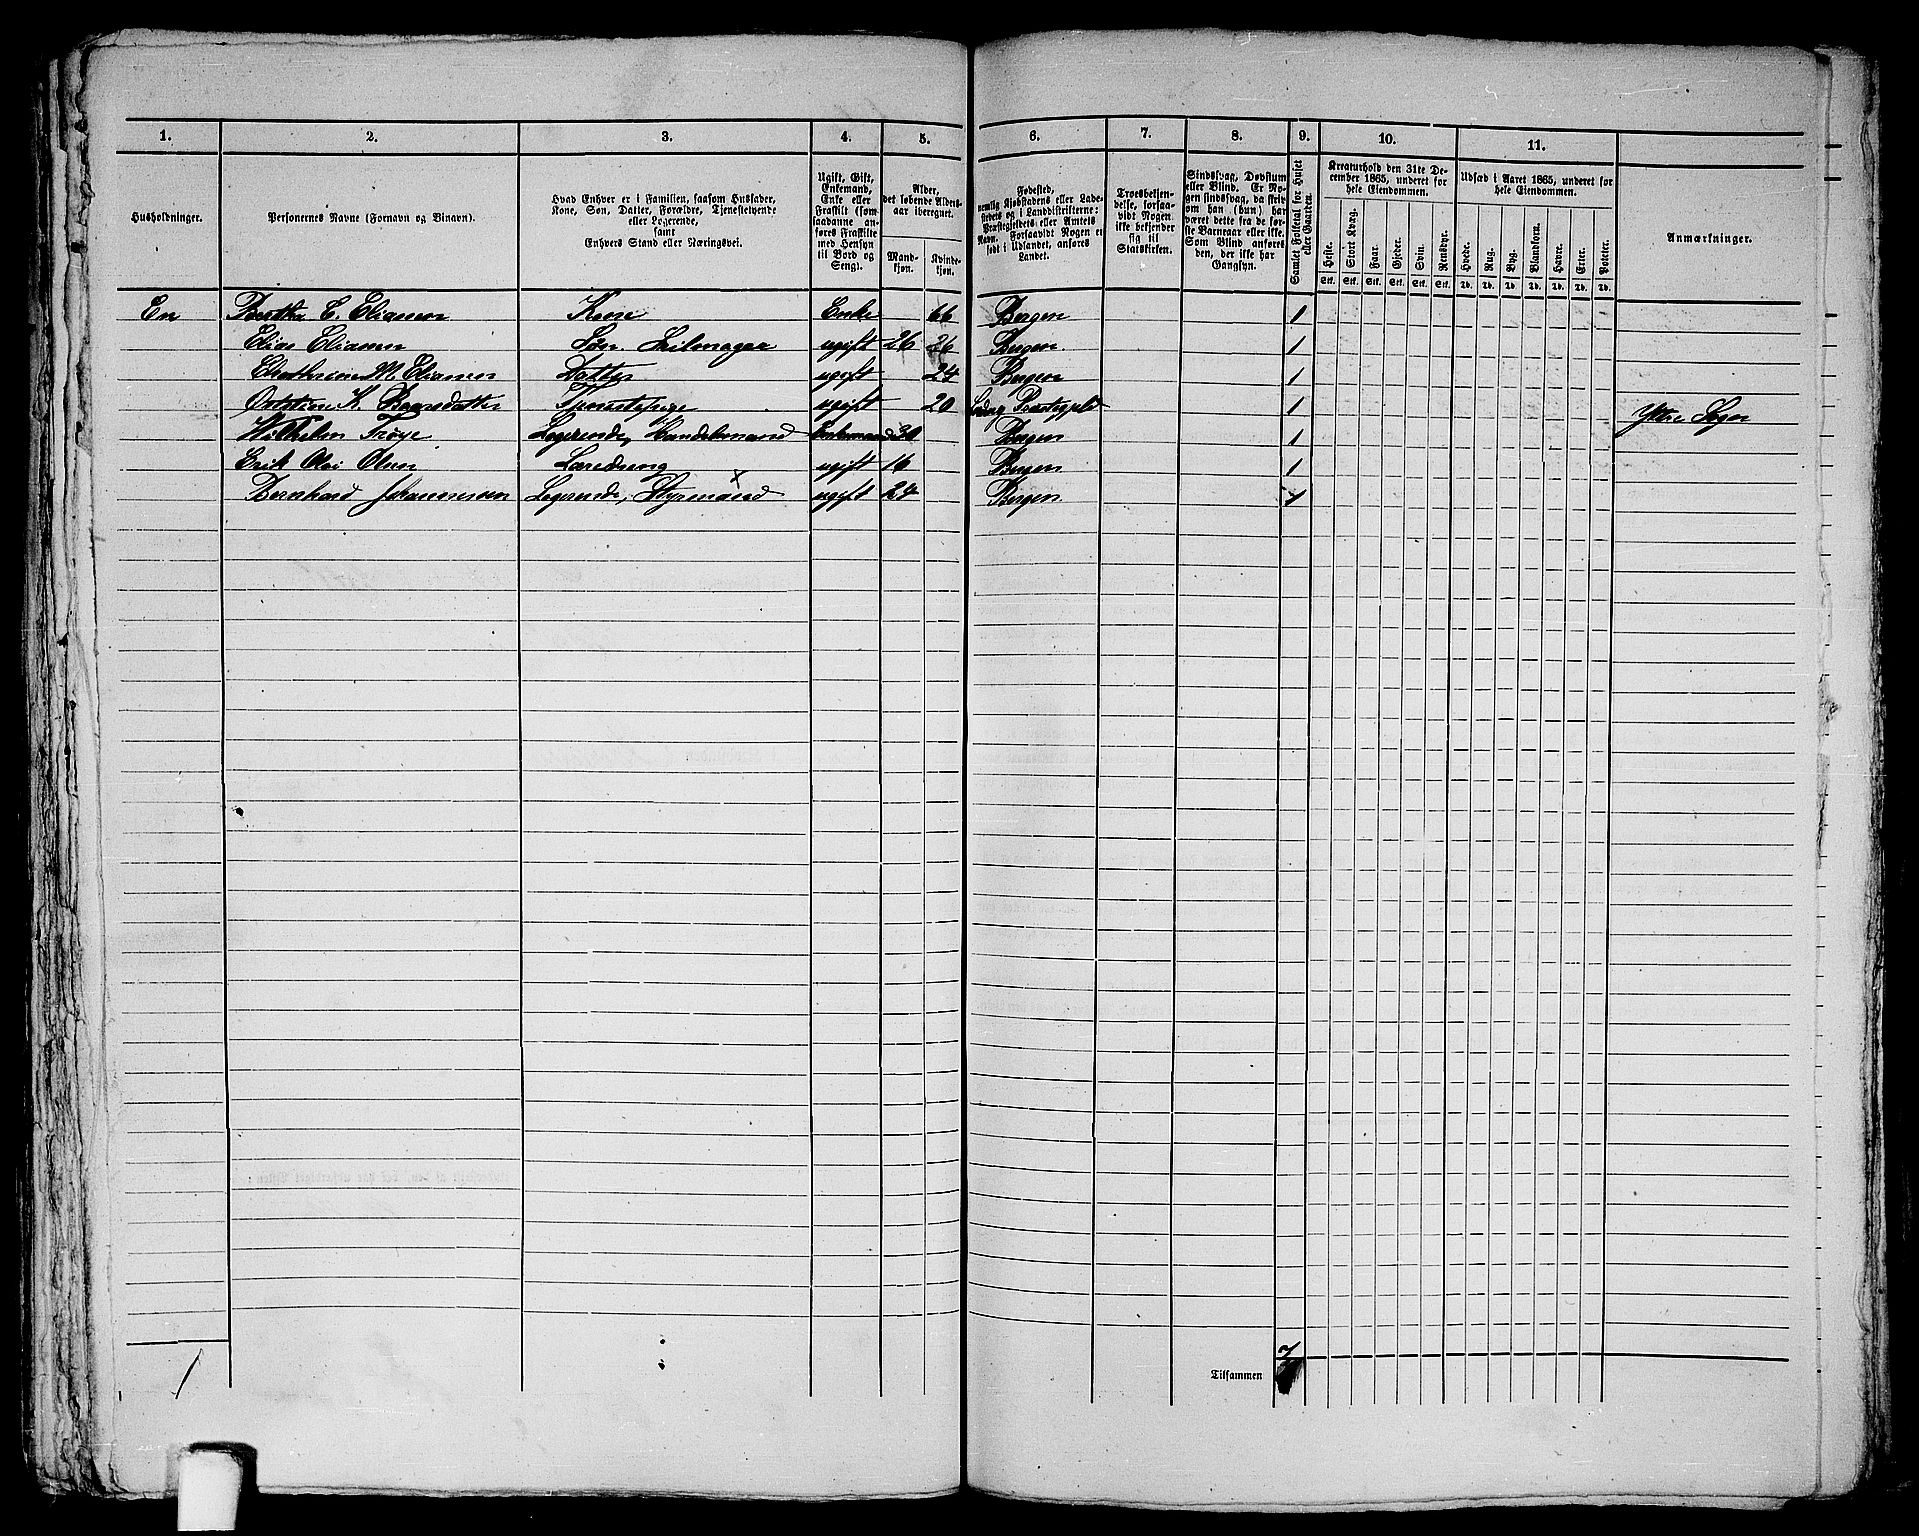 1. 2. 3. 4. 5. 6. 7. 8. 9. 10. 11.
Husholdninger.
Personernes Navne (Fornavn og Binavn).
Hvad Enhver er i Familien, saasom Husfader,
Kone, Søn, Datter, Forældre, Tjenestetyende
eller Logerende,
samt
Enhvers Stand eller Næringsvei.
Ugift, Gift,
Enkemand,
Enke eller
Fraskilt (som
saadanne an-
føres Fraskilte
med Hensyn
til Bord og
Seng).
Alder,
det løbende Alders-
aar iberegnet.
Mand-
kjøn.
Kvinde-
kjøn.
Fødested,
nemlig Kjøbstadens eller Lade-
stedets og i Landdistrikterne:
Præstegjeldets eller Amtets
Navn. Forsaavidt Nogen er
født i Udlandet, anføres
Landet.
Troesbekjen-
delse, forsaa-
vidt Nogen
ikke bekjender
sig til
Statskirken.
Sindssvag, Døvstum
eller Blind. Er No-
gen sindssvag, da skriv
om han (hun) har
været dette fra de før-
ste Barneaar eller ikke.
Som Blind anføres
den, der ikke har
Gangsyn.
Samlet Folketal for Huset
eller Gaarden.
Kreaturhold den 31te De-
cember 1865, underet for
hele Eiendommen.
Heste. Stort Kvæg. Faar. Gjeder. Svin. Rensdyr.
Stk. Stk. Stk. Stk. Stk. Stk.
Udsæd i Aaret 1865, underet for
hele Eiendommen.
Hvede. Rug. Byg. Blandkorn. Havre. Erter. Poteter.
Td. Td. Td. Td. Td. Td. Td.
Anmærkninger.
En Bertha E. Eliassen Kone Enke 66 Bergen 1
Elias Eliassen Søn, Seilmager ugift 26 26 Bergen 1
M. Eliassen Datter ugift 24 Bergen 1
K. Tjenestepige ugift 20 Præstegjeld 1 Yttre Sogn
Wilhelm Trøye Logerende, Handelsmand Enkemand 30 Bergen 1
Erik Olai Olsen Læredreng ugift 16 Bergen 1
Bernhard Johannessen Logerende, Styrmand ugift 24 Bergen 1
1
Tilsammen 7